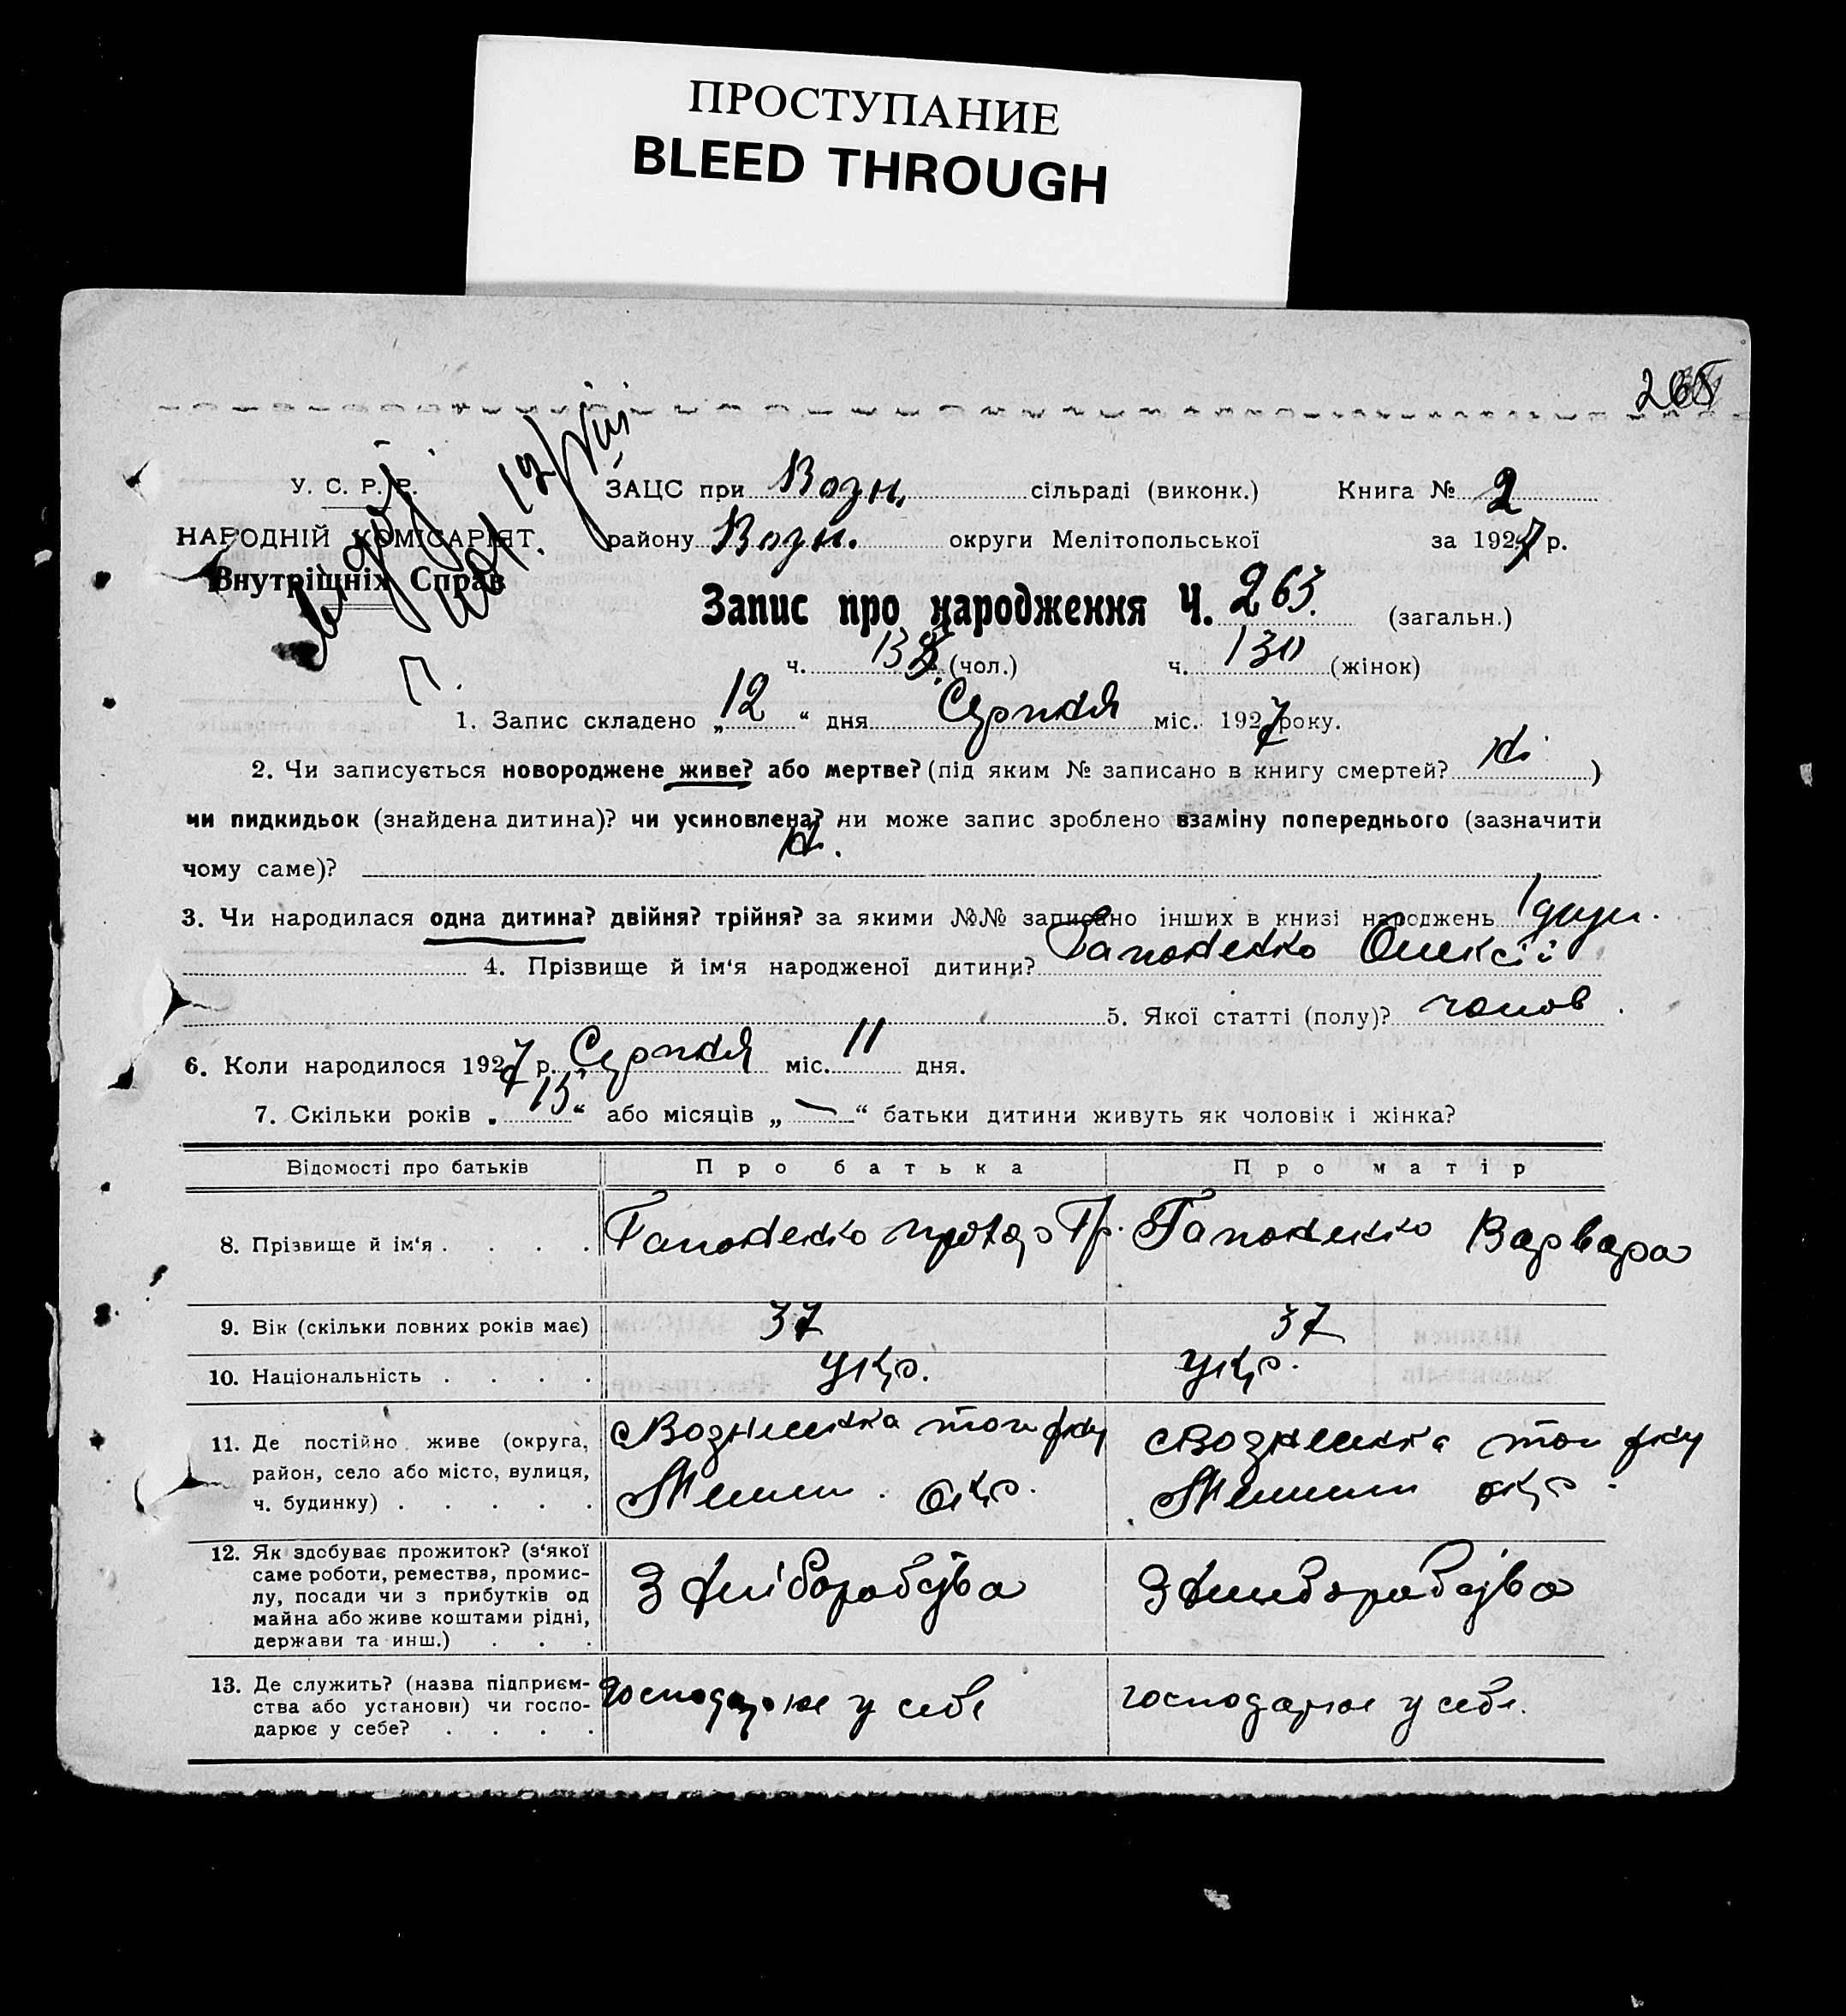 ПРОСТУПАНИЕ
BLEED THROUGH
У. С. Р. Р.
НАРОДНІЙ КОМІСАРІЯТ
Внутрішніх Справ
ЗАЦС при Возн. сільраді (виконк.) Книга № 2
району Возн. округи Мелітопольської за 1927 р.
Запис про народження Ч. 263. (загальн.)
ч. (чол.) ч. 130 (жінок)
1. Запис складено „12“ дня Серпня міс. 1927 року.
2. Чи записується новороджене живе? або мертве? (під яким № записано в книгу смертей? ні)
чи пидкидьок (знайдена дитина)? чи усиновлена? чи може запис зроблено взаміну попереднього (зазначити
чому саме)? ні.
3. Чи народилася одна дитина? двійня? трійня? за якими №№ записано інших в книзі народжень 1
4. Прізвище й ім‘я народженої дитини? Гапоненко Олексій
5. Якої статті (полу)? чолов.
6. Коли народилося 1927 р. Серпня міс. 11 дня.
7. Скільки років „15“ або місяців „—“ батьки дитини живуть як чоловік і жінка?
Відомості про батьків Про батька Про матір
8. Прізвище й ім‘я . . . . Гапоненко Гр. Гапоненко Варвара
9. Вік (скільки повних років має) 37 37
10. Національність . . . . укр. укр.
11. Де постійно живе (округа,
район, село або місто, вулиця,
ч. будинку) . . . . .
Вознесенка того ж р-ну
Мелит. окр.
Вознесенка того ж р-ну
Мелит. окр.
12. Як здобуває прожиток? (з‘якої
саме роботи, ремества, промис-
лу, посади чи з прибутків од
майна або живе коштами рідні,
держави та инш.) . . .
З хліборобства
З хліборобства
13. Де служить? (назва підприєм-
ства або установи) чи госпо-
дарює у себе? . . . .
господарює у себе
господарює у себе.